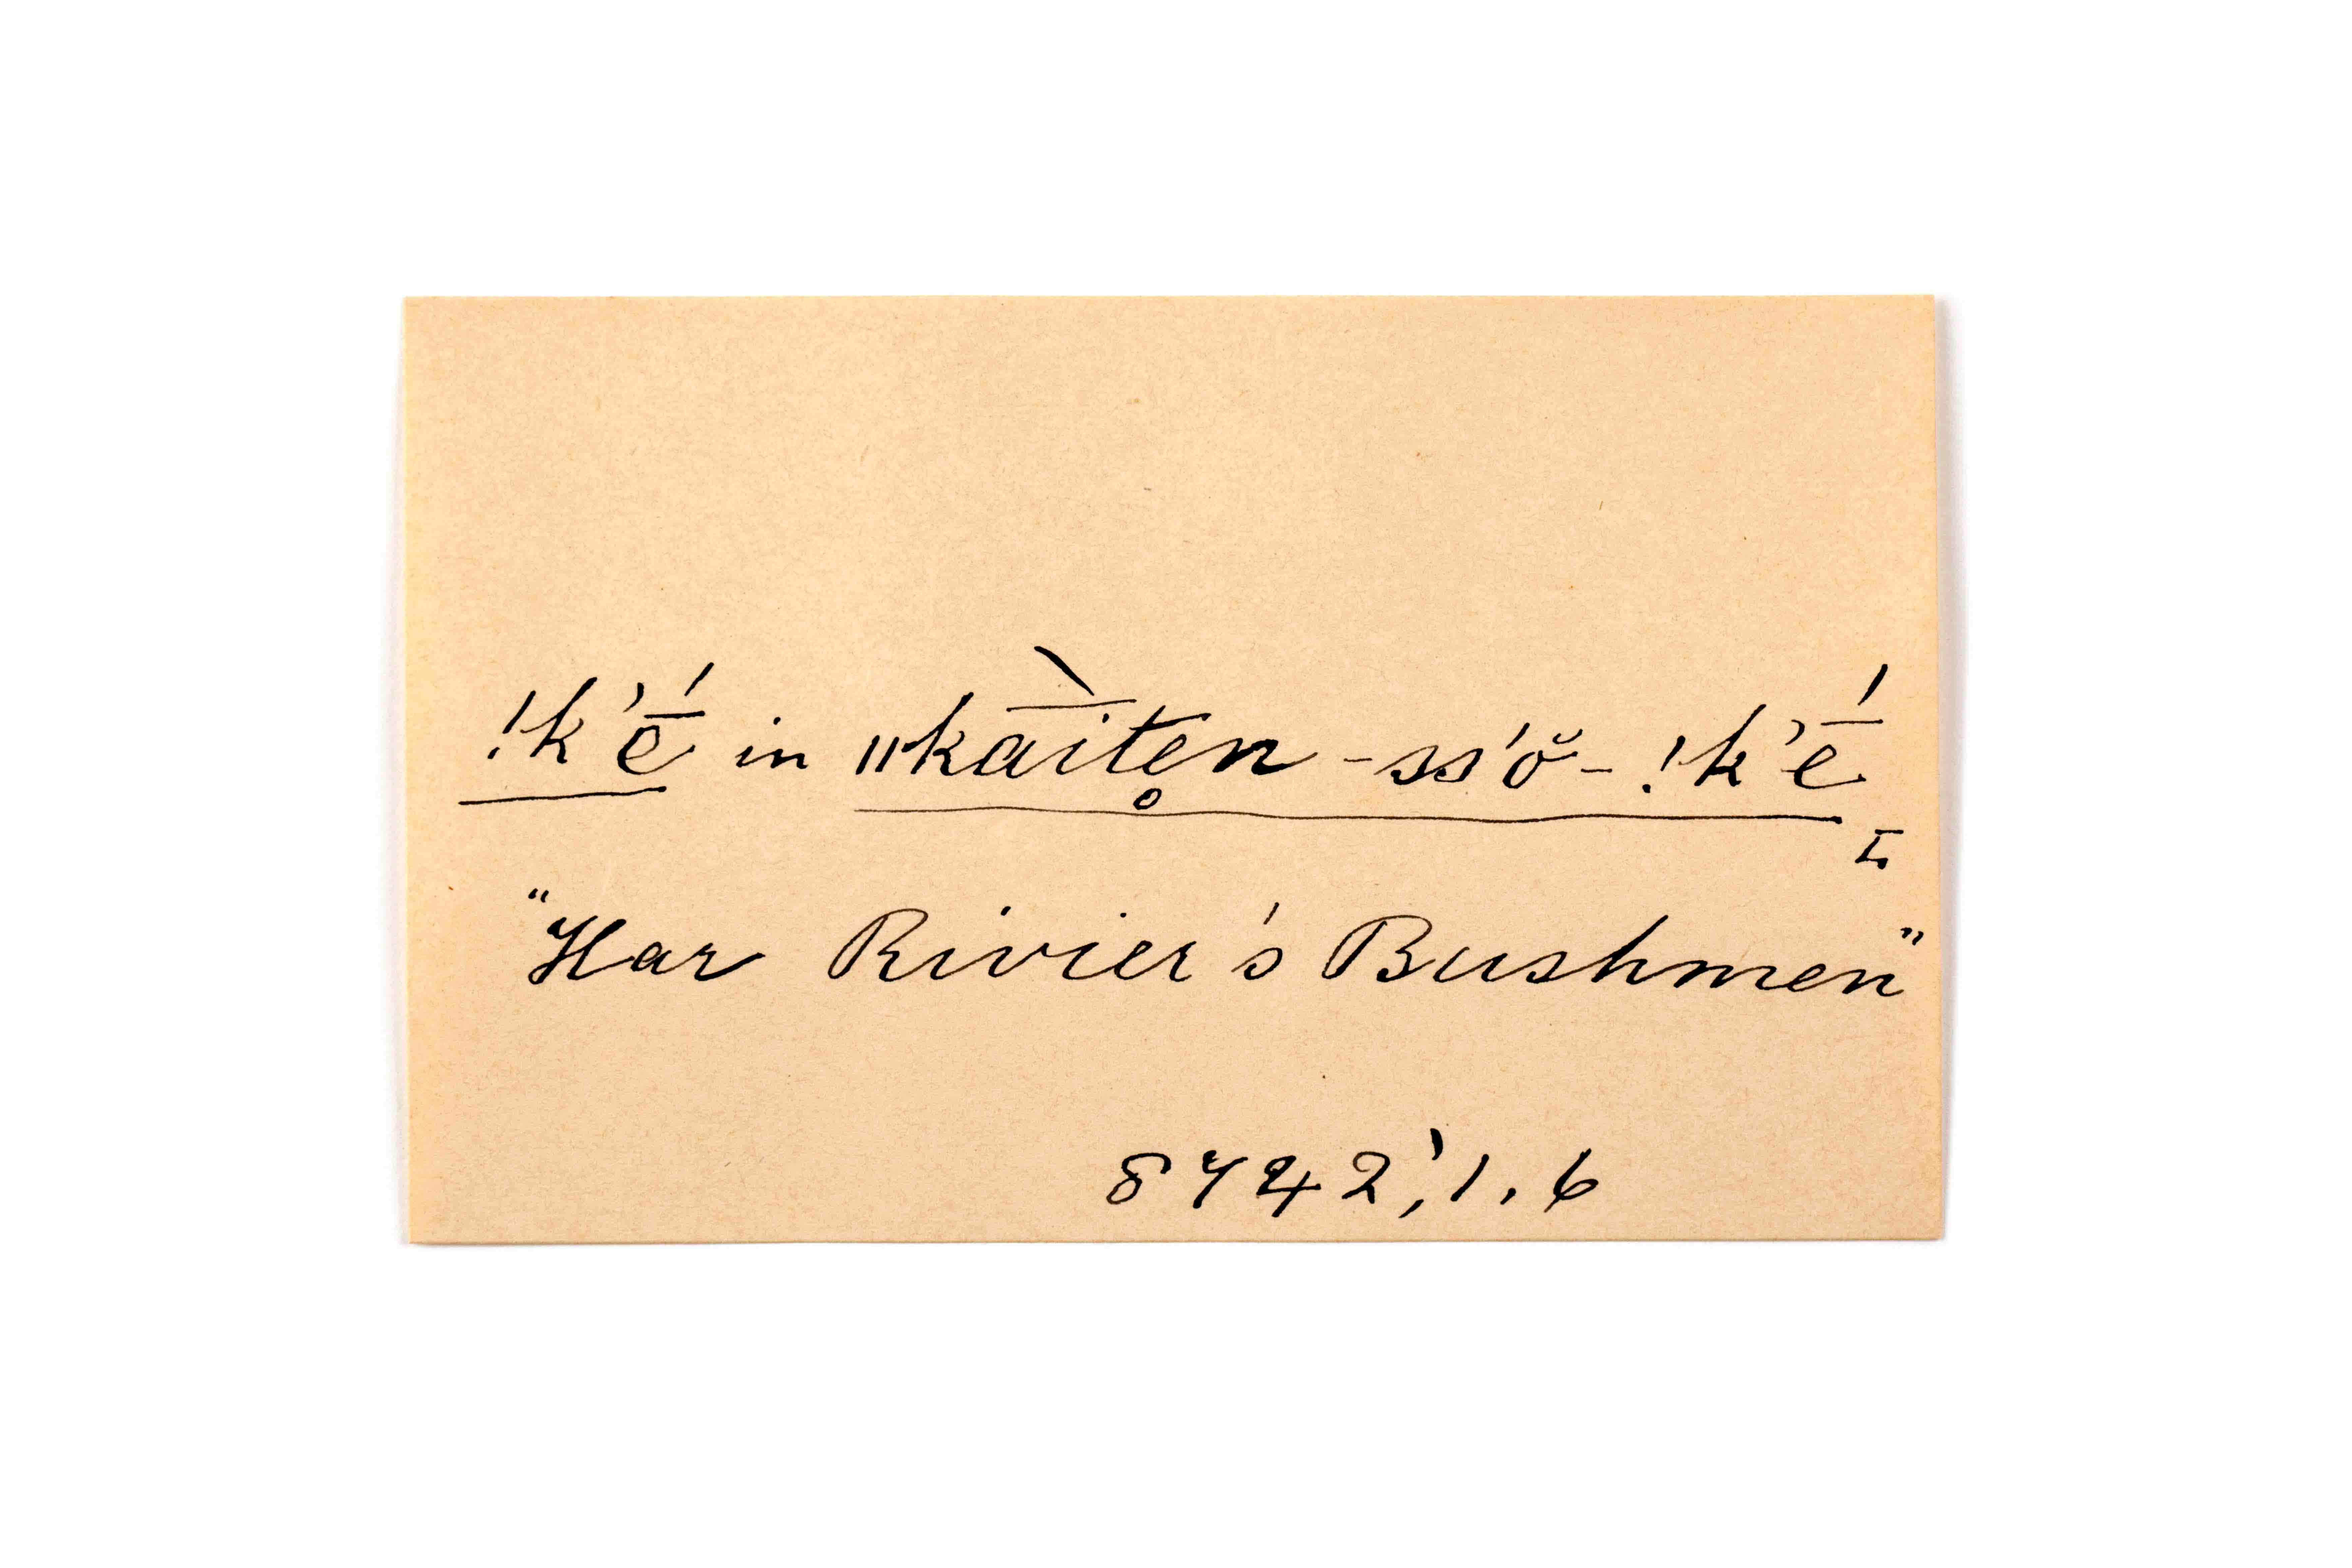 !k'ḗ in ǁkā̀ite̥n-ss'ŏ-!k'ḗ
I.
"Har Rivier's Bushmen"
8742', 1. 6